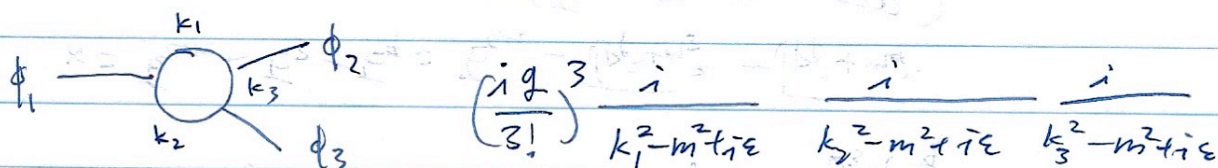 k₁
ϕ₁ ϕ₂
k₃
k₂ ϕ₃
(ig/3!)³ i/(k₁²-m²+iε) i/(k₂²-m²+iε) i/(k₃²-m²+iε)